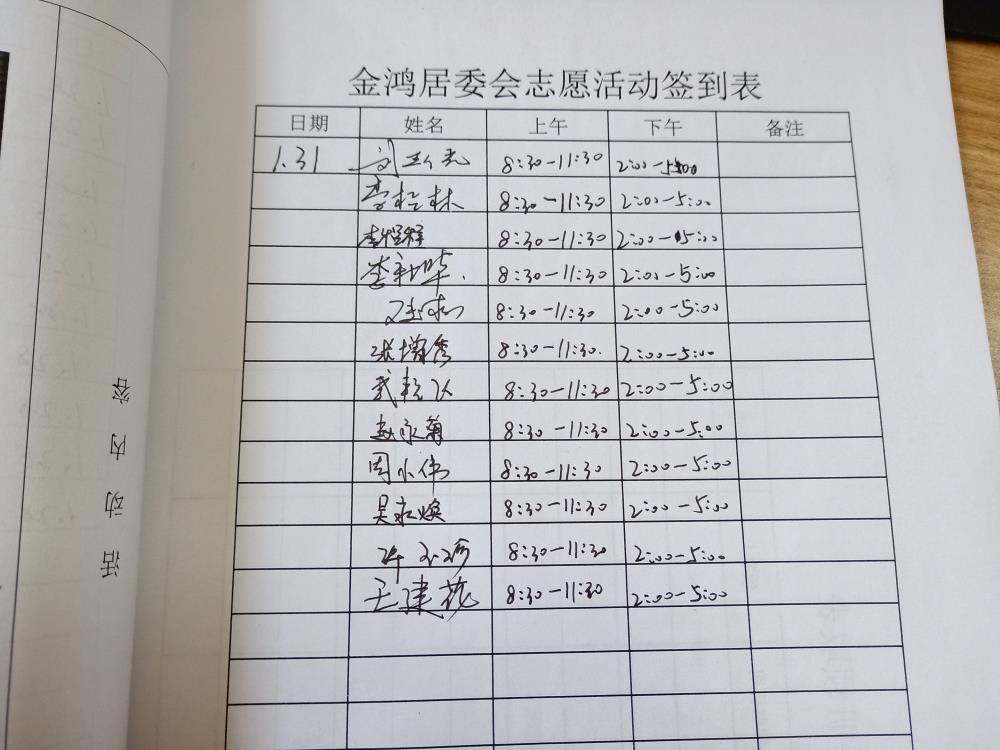 金鸿居委会志愿活动签到表
日期 姓名 上午 下午 备注
1.31 刘 8:30-11:30 2:00-5:00
李 林 8:30-11:30 2:00-5:00
李 8:30-11:30 2:00-5:00
李 华 8:30-11:30 2:00-5:00
8:30-11:30 2:00-5:00
张增秀 8:30-11:30 2:00-5:00
武 8:30-11:30 2:00-5:00
赵永菊 8:30-11:30 2:00-5:00
周小伟 8:30-11:30 2:00-5:00
吴永焕 8:30-11:30 2:00-5:00
许 8:30-11:30 2:00-5:00
王建花 8:30-11:30 2:00-5:00
活动内容